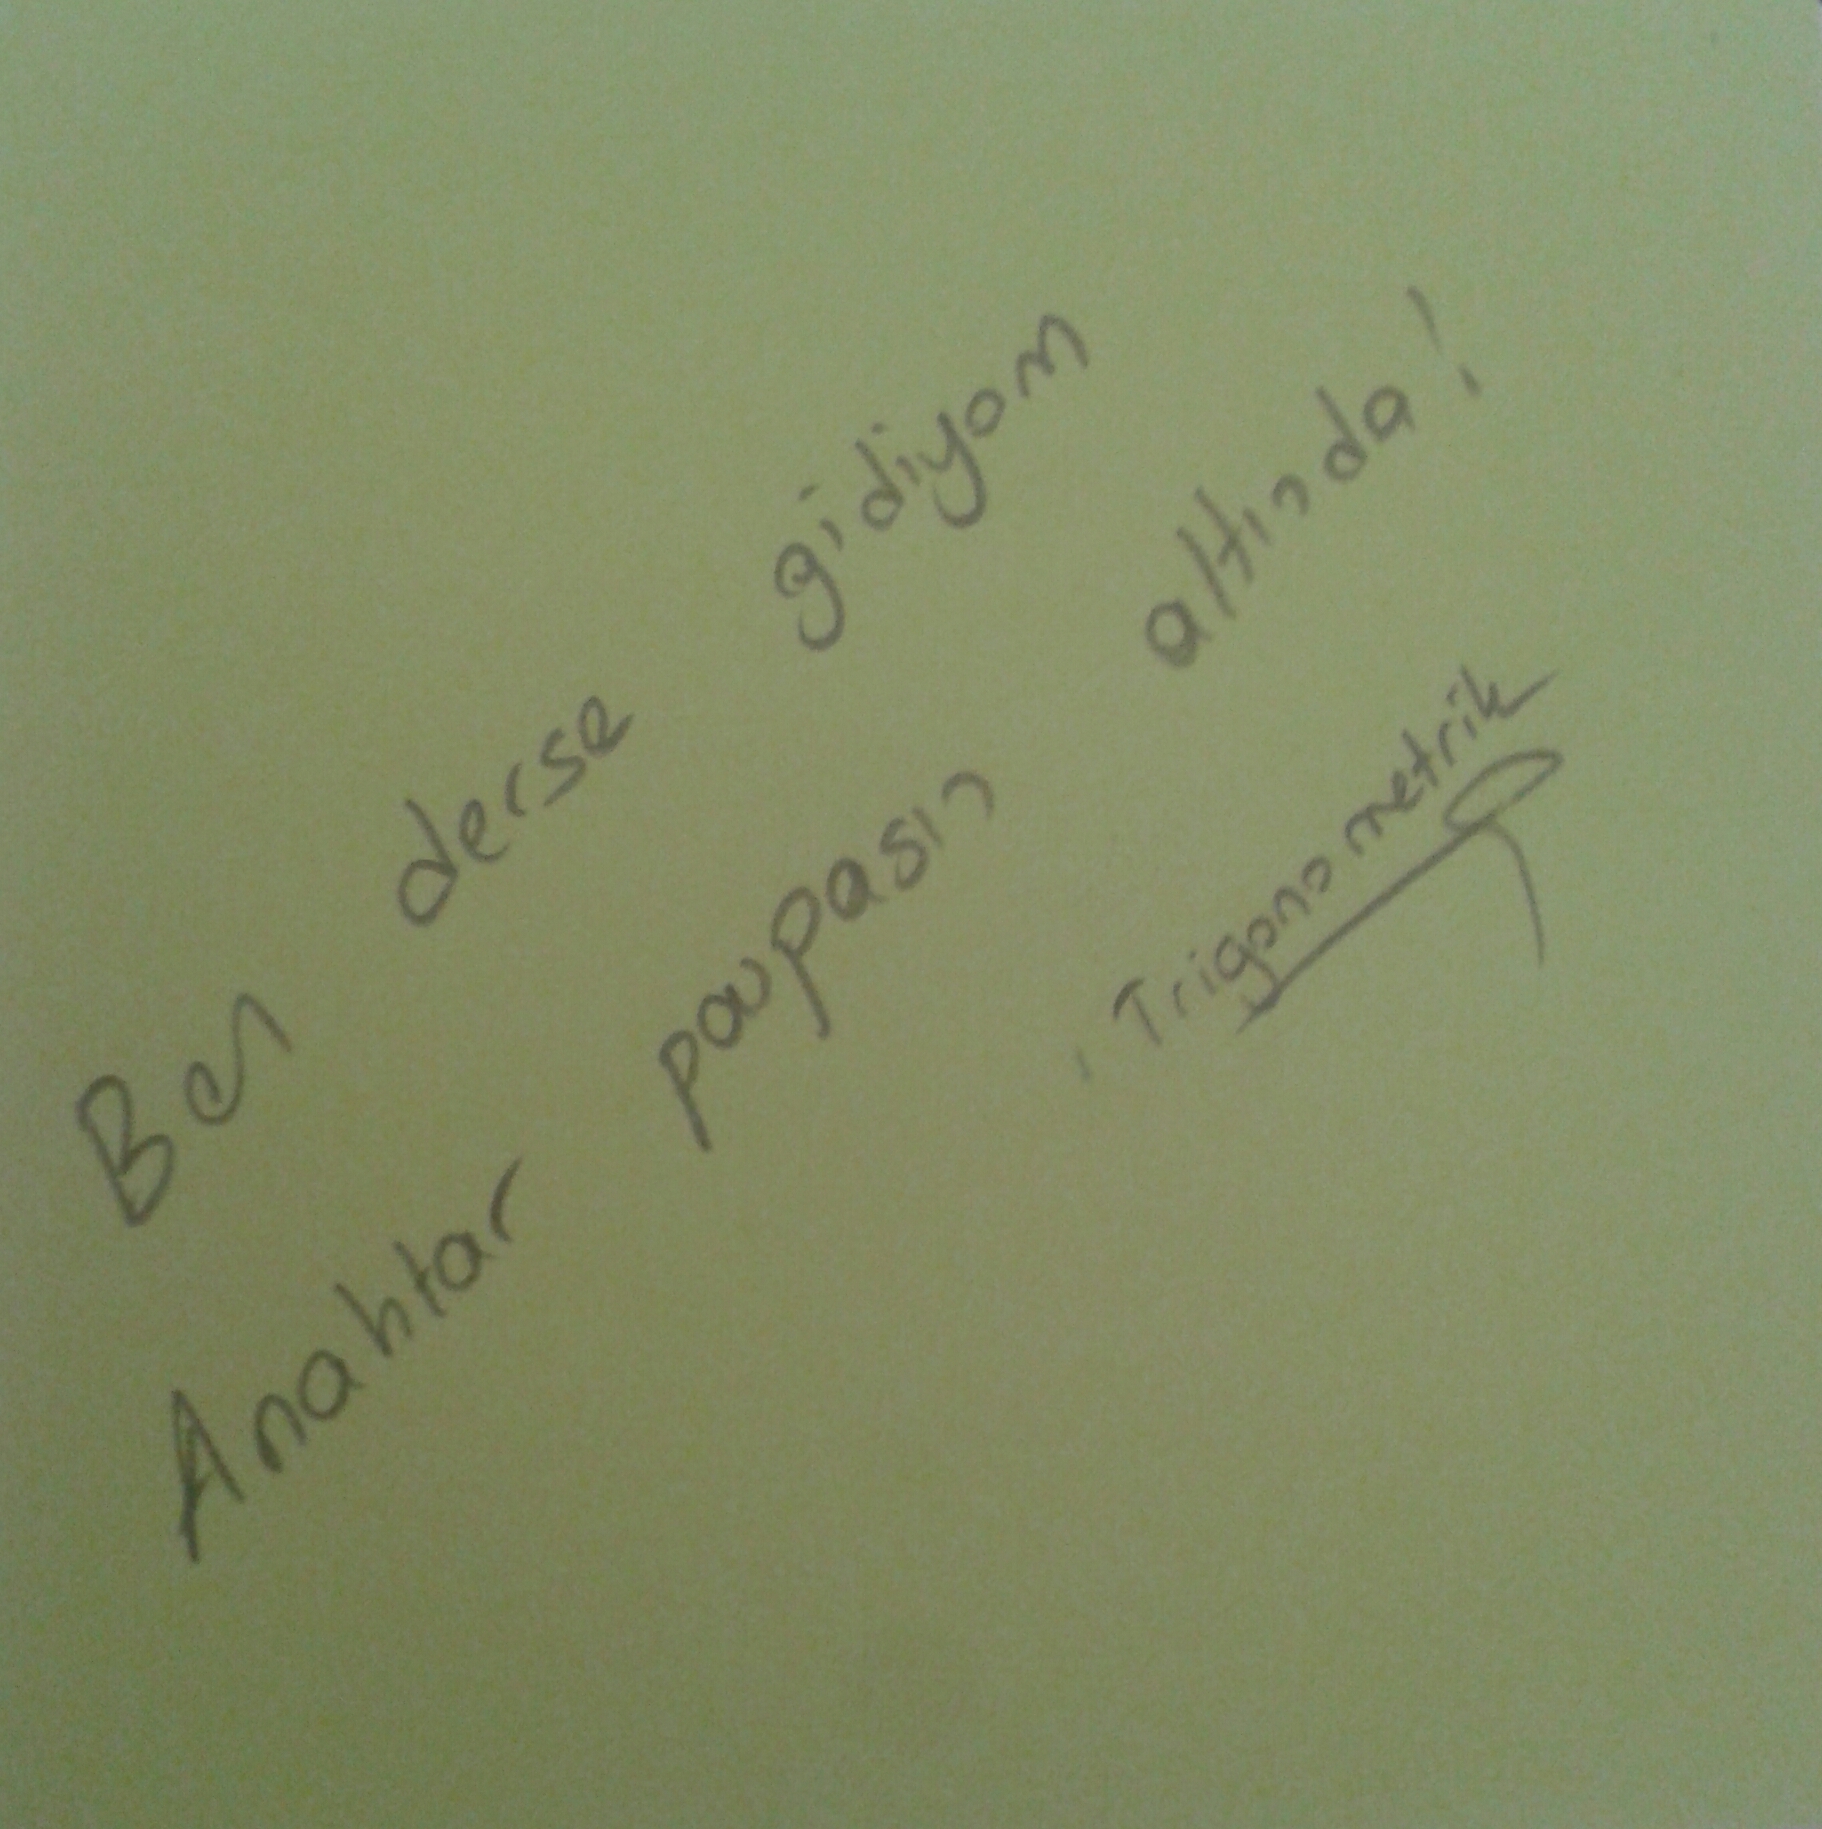 Ben derse gidiyom
Anahtar paspasın altında!
Trigonometrik